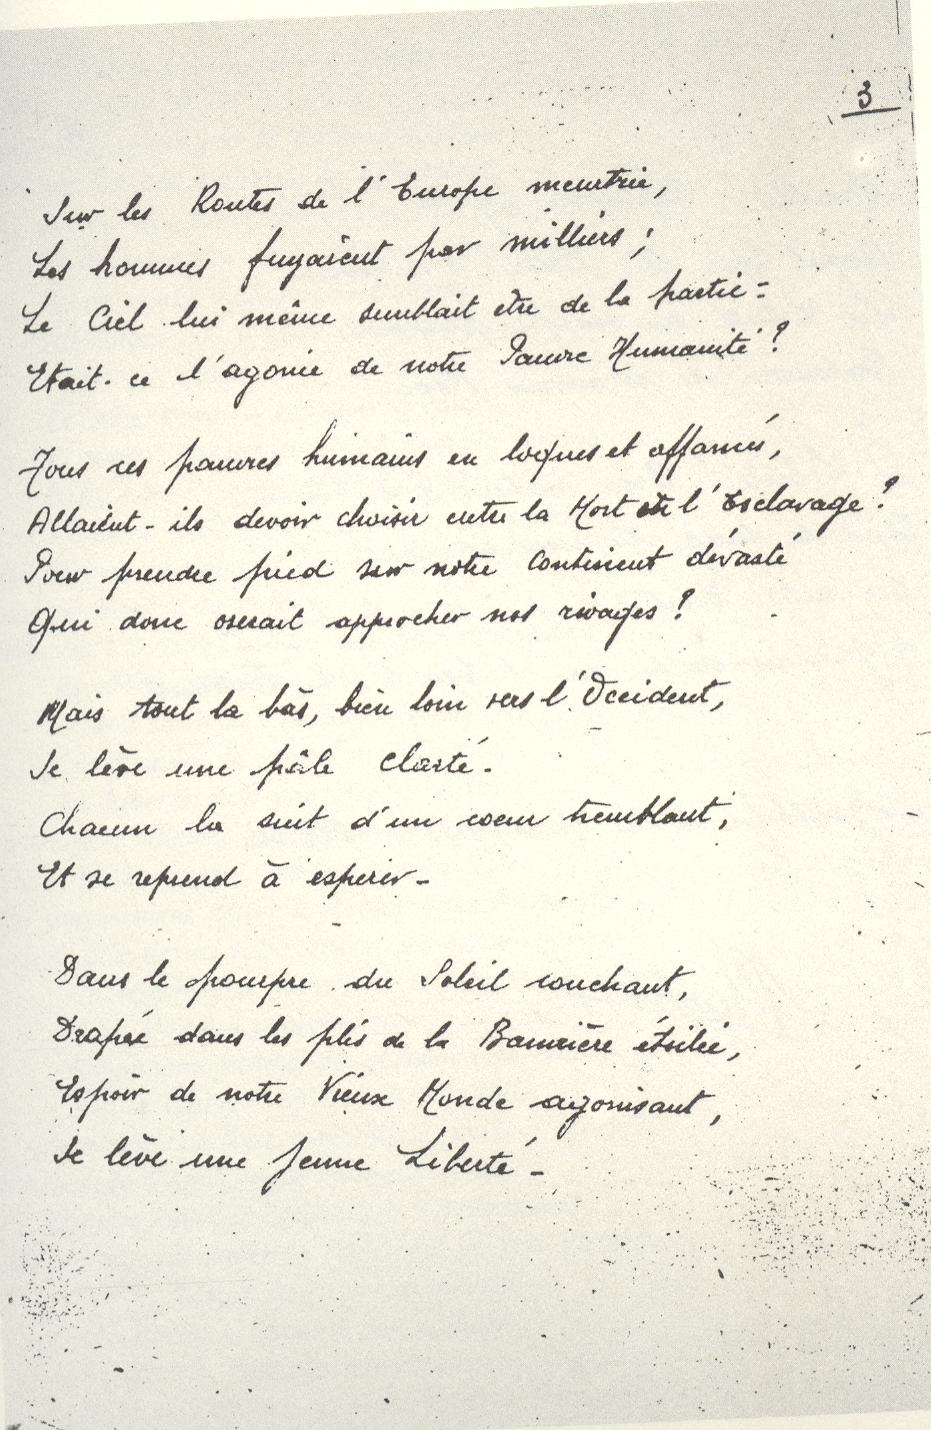 3
Sur les Routes de l'Europe meurtrie,
Les hommes fuyaient par milliers ;
Le Ciel lui même semblait être de la partie -
Etait-ce l'agonie de notre Pauvre Humanité ?
Tous ces pauvres humains en loques et affamés,
Allaient-ils devoir choisir entre la Mort et l'Esclavage ?
Pour prendre pied sur notre continent dévasté
Qui donc oserait approcher nos rivages ?
Mais tout la bàs, bien loin vers l'Occident,
Se lève une pâle Clarté.
Chacun la suit d'un coeur tremblant,
Et se reprend à esperer -
Dans le pourpre du Soleil couchant,
Drapée dans les plis de la Bannière étoilée,
Espoir de notre Vieux Monde agonisant,
Se lève une Jeune Liberté -